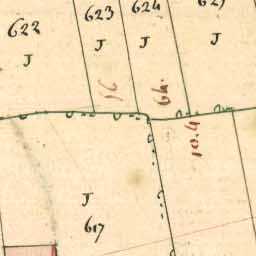 622
J
623
J
624
J
J
16
64.
10.4
J
617